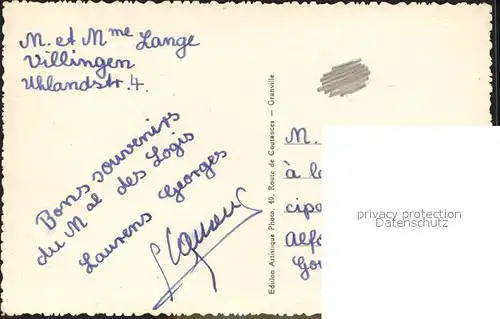 M. et Mme Lange
Villingen
Uhlandstr. 4.
Bons souvenirs
du Mal des Logis
Laurens Georges
Edition Artistique Photo, 40, Route de Coutances — Granville
M.
à l
cipa
Alfo
Gou
privacy protection
Datenschutz